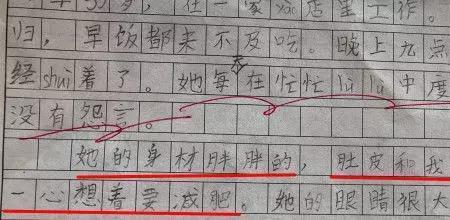 岁，在一家饭店里工作。
归，早饭都来不及吃。晚上九点
经shuì着了。她每天在忙忙lù lù中度
没有怨言。
她的身材胖胖的，肚皮和我
一心想着要减肥。她的眼睛很大